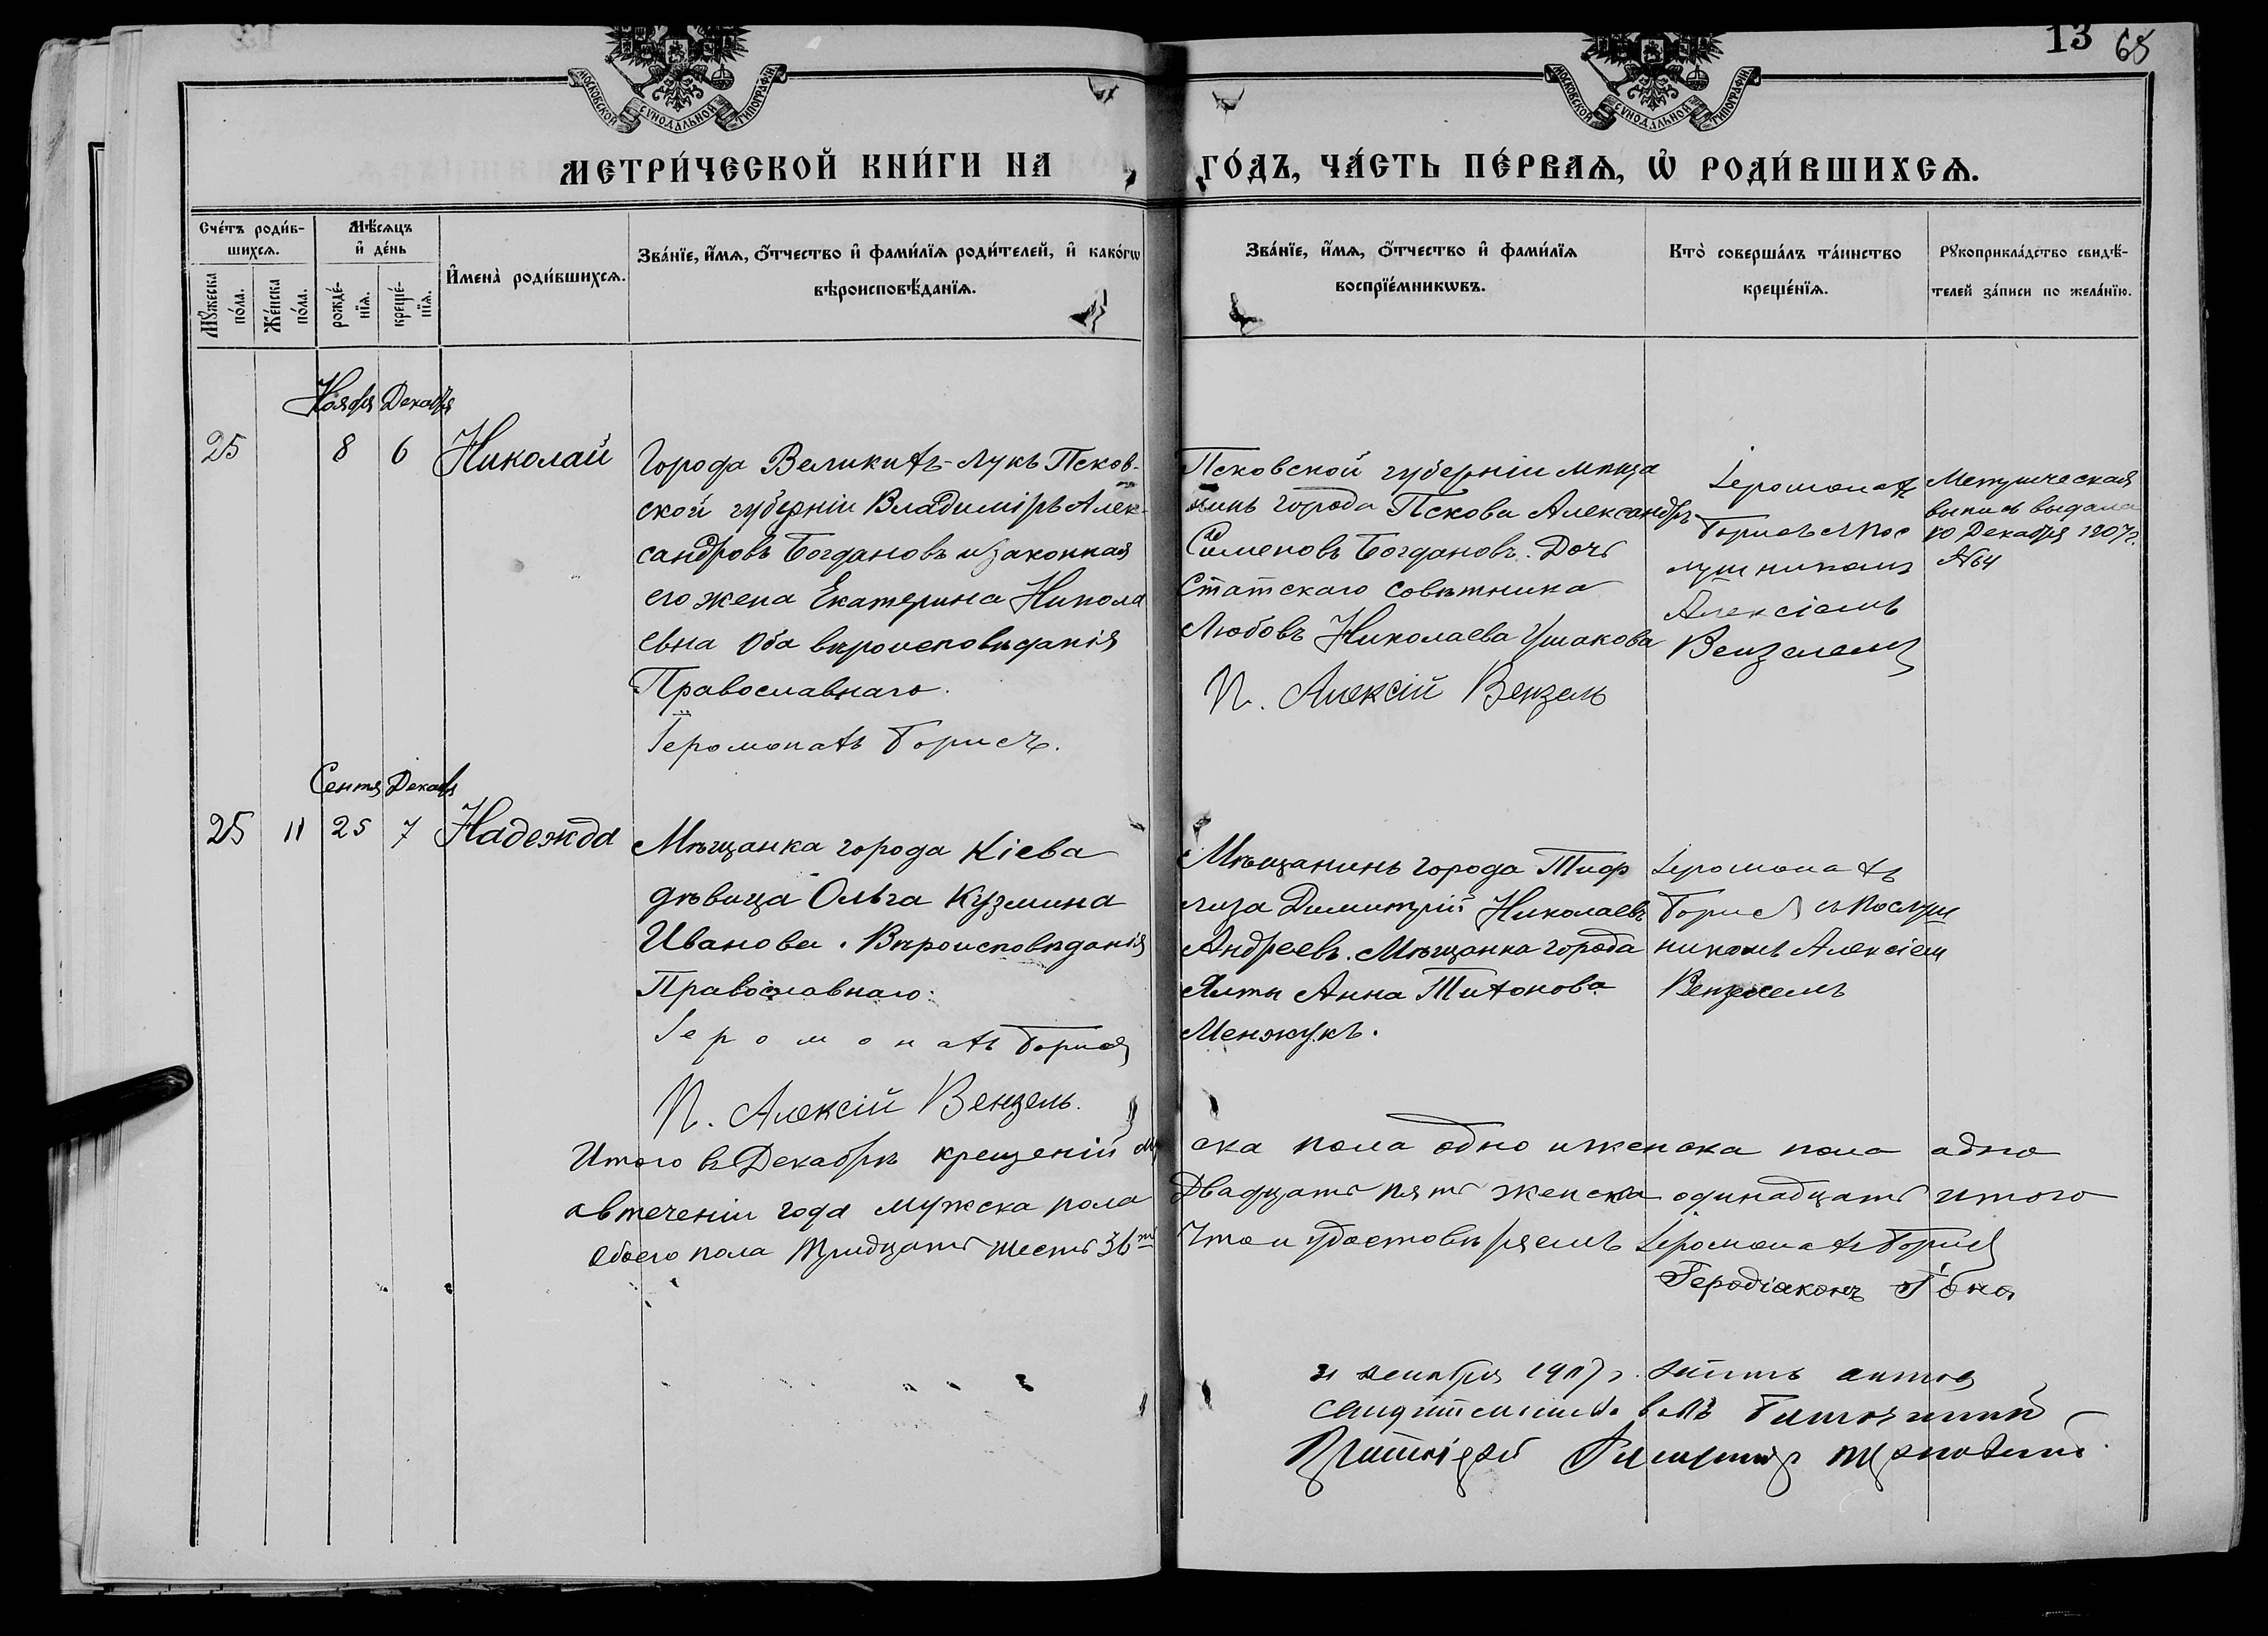 13 65
МОСКОВСКОЙ СѴНОДАЛЬНОЙ ТИПОГРАФІИ
МОСКОВСКОЙ СѴНОДАЛЬНОЙ ТИПОГРАФІИ
МЕТРИ́ЧЕСКОЙ КНИ́ГИ НА
ГО́ДЪ, ЧА́СТЬ ПЕ́РВАѦ, Ѡ҆ РОДИ́ВШИХСѦ.
Сче́тъ роди́в-
шихсѧ.
Мꙋ́жеска по́ла.
Же́нска по́ла.
Мѣ́сѧцъ
и҆ де́нь
рожде́-
нїѧ.
креще́-
нїѧ.
И҆мена̀ роди́вшихсѧ.
Зва́нїе, и҆́мѧ, ѻ҆́тчество и҆ фами́лїѧ роди́телей, и҆ како́гѡ
вѣроисповѣ́данїѧ.
Зва́нїе, и҆́мѧ, ѻ҆́тчество и҆ фами́лїѧ
воспрїе́мникѡвъ.
Кто̀ соверша́лъ та́инство
креще́нїѧ.
Рꙋкоприкла́дство свидѣ́-
телей за́писи по жела́нїю.
Ноября Декабря
25 8 6 Николай
Города Великихъ-Лукъ Псков-
ской губерніи Владиміръ Алек-
сандровъ Богдановъ и законная
его жена Екатерина Никола
евна Оба вѣроисповѣданія
Православнаго.
Іеромонахъ Борисъ.
Псковской губерніи мѣща
нинъ города Пскова Александръ
Сименовъ Богдановъ. Дочь
Статскаго совѣтника
Любовь Николаева Ушакова
П. Алексій Вензель
Іеромонахъ
Борисъ с Пос
лушникомъ
Алексіемъ
Вензелемъ
Метрическая
выпись выдана
10 Декабря 1907 г.
№64
Сентя Декабря
25 11 25 7 Надежда
Мѣщанка города Кіева
дѣвица Ольга Кузмина
Иванова. Вѣроисповѣданія
Православнаго.
Іеромонахъ Борисъ
П. Алексій Вензель.
Мѣщанинъ города Тиф
лиза Димитрій Николаевъ
Андреевъ. Мѣщанка города
Ялты Анна Тихонова
Менжукъ.
Іеромонахъ
Борисъ съ Послуш
никомъ Алексіем
Вензелемъ
Итого въ Декабрѣ крещеній му
ска пола одно и женска пола одно
а втеченіи года мужска пола
Двадцать пять женска одинадцать итого
Обоего пола Тридцать шесть 36ть
Что и удостовѣряемъ Іеромонахъ Борисъ
Іеродіаконъ Іона
31 декабря 1907 г.